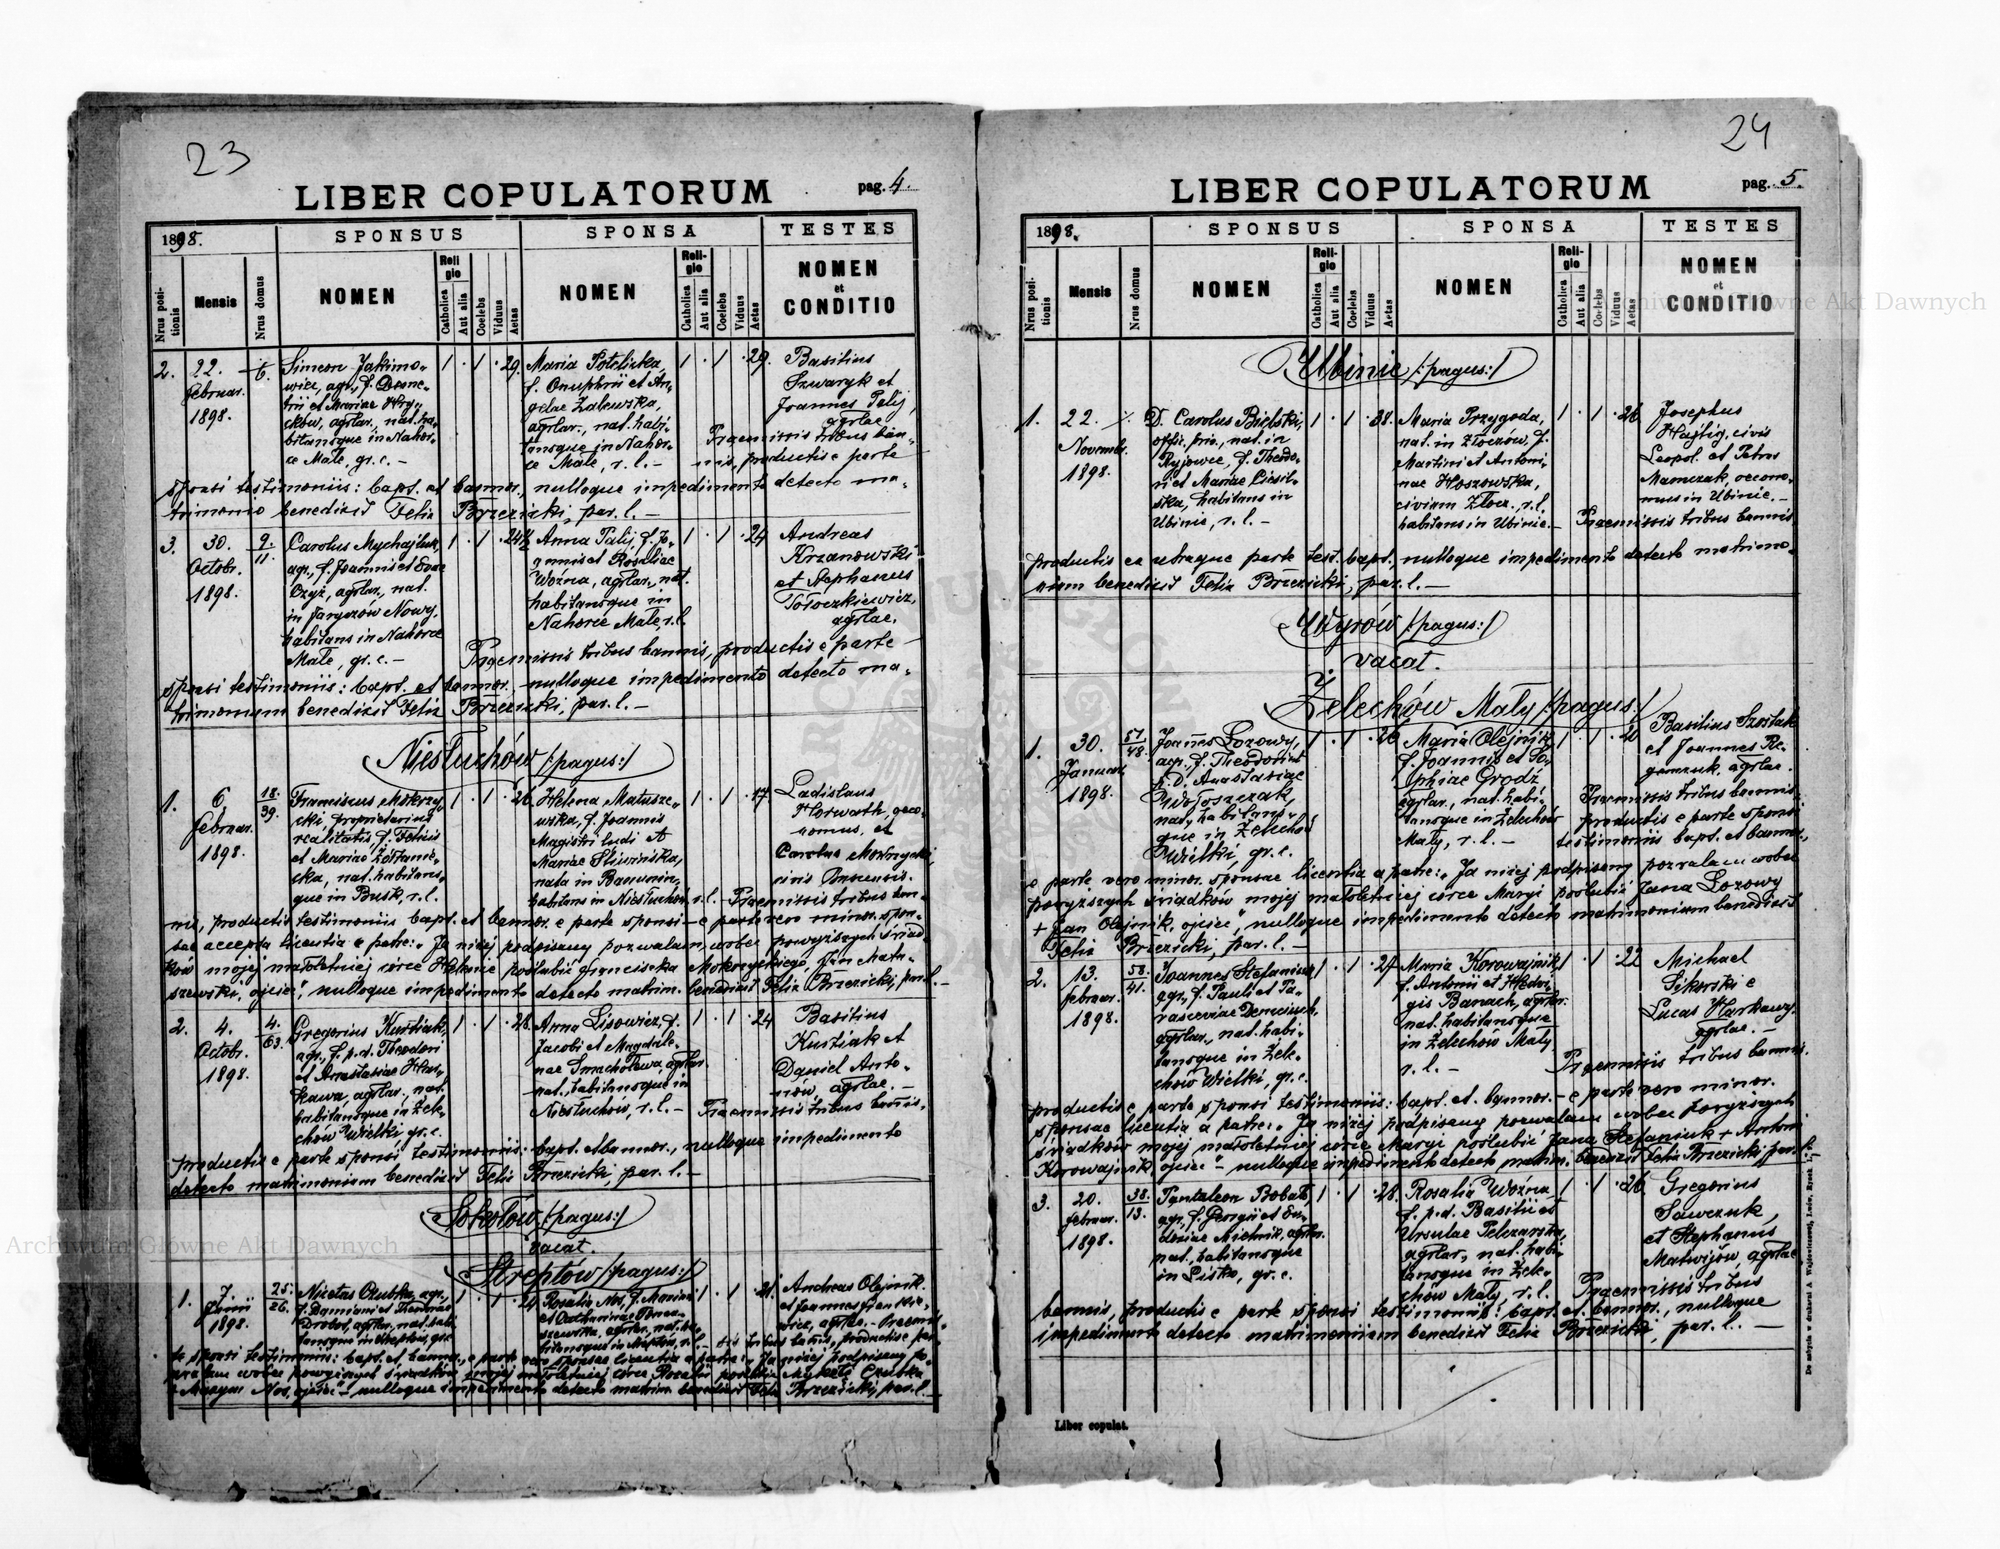 23
LIBER COPULATORUM
pag. 4.
1898.
SPONSUS
SPONSA
TESTES
Nrus positionis
Mensis
Nrus domus
NOMEN
Religio
Catholica
Aut alia
Coelebs
Viduus
Aetas
NOMEN
Religio
Catholica
Aut alia
Coelebs
Viduus
Aetas
NOMEN
et
CONDITIO
2.
22.
Februar.
1898.
Simeon Jakimo-
wicz, agr., f. Deme-
trii et Mariae Hry-
ców, agrlar., nat. ha-
bitansque in Nahor-
ce Małe, gr. c. –
1 · 1 · 29.
Maria Potelicka,
f. Onuphrii et An-
gelae Zalewska,
agrlar., nat. habi-
tansque in Nahor-
ce Małe, r. l. –
1 · 1 · 29.
Basilius
Szwaryk et
Joannes Palij,
agrlae.
Praemissis tribus ban-
nis, productis e parte
sponsi testimoniis: bapt. et bannor., nulloque impedimento detecto ma-
trimonio benedixit Felix Brzezicki, par. l. –
3.
30.
Octobr.
1898.
9.
11.
Carolus Mychajluk,
agr., f. Joannis et Evae
agrlar., nat.
in Jaryczów Nowy,
habitans in Nahorce
Małe, gr. c. –
1 · 1 · 24½
Anna Palij, f. Jo-
annis et Rosaliae
Woźna, agrlar., nat.
habitansque in
Nahorce Małe, r. l.
1 · 1 · 24
Andreas
Krzanowski
et Stephanus
Tołoczkiewicz,
agrlae.
Praemissis tribus bannis, productis e parte
sponsi testimoniis: bapt. et bannor. nulloque impedimento detecto ma-
trimonium benedixit Felix Brzezicki, par. l. –
Niesłuchów /:pagus:/
1.
6.
Februar.
1898.
18.
39.
Franciscus Mokrzy-
cki, proprietarius
realitatis, f. Felicis
et Mariae Żółtanie-
cka, nat. habitans-
que in Busk, r. l.
1 · 1 · 26.
Helena Matusze-
wska, f. Joannis
Magistri ludi et
Mariae Śliwińska,
nata in
habitans in Niesłuchów, r. l. –
1 · 1 · 17
Ladislaus
Horwath, oeco-
nomus, et
Carolus
civis Buscensis.
Praemissis tribus ban-
nis, productis testimoniis bapt. et bannor. e parte sponsi – e parte vero minor. spon-
sae accepta licentia e patre: „Ja niżej podpisany pozwalam, wobec powyższych świad-
ków mojej małoletniej córce Helenie poślubić Franciszka Mokrzyckiego, Jan Matu-
szewski, ojciec", nulloque impedimento detecto matrim. benedixit Felix Brzezicki, par. l. –
2.
4.
Octobr.
1898.
4.
63.
Gregorius Kuśtiak,
agr., f. p. d. Theodori
et Anastasiae Har-
kawa, agrlar., nat.
habitansque in Żele-
chów Wielki, gr. c.
1 · 1 · 28.
Anna Lisowicz, f.
Jacobi et Magdale-
nae Smachotawa, agrlar.
nat., habitansque in
Niesłuchów, r. l. –
1 · 1 · 24
Basilius
Kuśtiak et
Daniel Anto-
niów, agrlae. –
Praemissis tribus bannis,
productis e parte sponsi testimoniis: bapt. et bannor., nulloque impedimento
detecto matrimonium benedixit Felix Brzezicki, par. l. –
Sokołów /:pagus:/
vacat.
Streptów /:pagus:/
1.
7.
Junii
1898.
25.
26.
Nicetas Czubka, agr.,
f. Damiani et Theodorae
Drobot, agrlar., nat. habi-
tansque in Streptów, gr. c.
1 · 1 · 24
Rosalia Nos, f. Mariani
et Catharinae
agrlar., nat. ha-
bitansque in Streptów, r. l. –
1 · 1 · 21.
Andreas Olejnik
et Joannes
agrlae. – Praemis-
sis tribus bannis, productis e par-
te sponsi testimoniis: bapt. et bannor., e parte vero sponsae licentia a patre: „Ja niżej podpisany po-
zwalam wobec powyższych świadków mojej małoletniej córce Rozalii poślubić Mykitę Czubka
+ Maryan Nos, ojciec" – nulloque impedimento detecto matrim. benedixit Felix Brzezicki, par. l. –
24
LIBER COPULATORUM
pag. 5.
1898.
SPONSUS
SPONSA
TESTES
Nrus positionis
Mensis
Nrus domus
NOMEN
Religio
Catholica
Aut alia
Coelebs
Viduus
Aetas
NOMEN
Religio
Catholica
Aut alia
Coelebs
Viduus
Aetas
NOMEN
et
CONDITIO
Ubinie /:pagus:/
1.
22.
Novembr.
1898.
D. Carolus Bielski,
offic. priv., nat. in
Ryjowce, f. Theodo-
ri et Mariae
habitans in
Ubinie, r. l. –
1 · 1 · 38.
Maria Przygoda,
nat. in Złoczów, f.
Martini et Antoni-
nae Hoszowska,
civium Złocz., r. l.
habitans in Ubinie. –
1 · 1 · 26
Josephus
civis
Leopol. et Petrus
Mamczak, oecono-
mus in Ubinie. –
Praemissis tribus bannis,
productis ex utraque parte test. bapt., nulloque impedimento detecto matrimo-
nium benedixit Felix Brzezicki, par. l. –
Wyrów /:pagus:/
vacat.
Żelechów Mały /:pagus:/
1.
30.
Januar.
1898.
57
48.
Joannes Łozowy,
agr., f. Theodori et
p. d. Anastasiae
Wołoszczak,
nat., habitans-
que in Żelechów
Wielki, gr. c.
1 · 1 · 26
Maria Olejnik,
f. Joannis et So-
phiae Grodź
agrlar., nat. habi-
tansque in Żelechów
Mały, r. l. –
1 · 1 · 20
Basilius Szostak
et Joannes
agrlae.
Praemissis tribus bannis
productis e parte sponsi
testimoniis bapt. et bannor.,
e parte vero minor. sponsae licentia a patre: „Ja niżej podpisany pozwalam wobec
powyższych świadków mojej małoletniej córce Maryi poślubić Jana Łozowy
+ Jan Olejnik, ojciec", nulloque impedimento detecto matrimonium benedixit
Felix Brzezicki, par. l. –
2.
13.
Februar.
1898.
58.
41.
Joannes Stefaniuk,
agr., f. Pauli et Pa-
rasceviae
agrlar., nat. habi-
tansque in Żele-
chów Wielki, gr. c.
1 · 1 · 27
Maria Korowajnik,
f. Antonii et Hedwi-
gis Banach, agrlar.
nat. habitansque
in Żelechów Mały
r. l. –
1 · 1 · 22
Michael
Sikorski et
Lucas Harkawy,
agrlae. –
Praemissis tribus bannis,
productis e parte sponsi testimoniis: bapt. et bannor. – e parte vero minor.
sponsae licentia a patre: „Ja niżej podpisany pozwalam wobec powyższych
świadków mojej małoletniej córce Maryi poślubić Jana Stefaniuk + Anton
Korowajnik, ojciec" – nulloque impedimento detecto matrim. benedixit Felix Brzezicki, par. l.
3.
20.
Februar.
1898.
38.
13.
Pantaleon Bobat,
agr., f. Georgii et Eu-
doxiae Michnik, agrlar.
nat., habitansque
in Lisko, gr. c.
1 · 1 · 28.
Rosalia Woźna,
f. p. d. Basilii et
Ursulae Pelczarska,
agrlar., nat. habi-
tansque in Żele-
chów Mały, r. l.
1 · 1 · 26
Gregorius
Sawczuk,
et Stephanus
Matwijów, agrlae
Praemissis tribus
bannis, productis e parte sponsi testimoniis: bapt. et bannor., nulloque
impedimento detecto matrimonium benedixit Felix Brzezicki, par. l. –
Liber copulat.
Archiwum Główne Akt Dawnych
Archiwum Główne Akt Dawnych